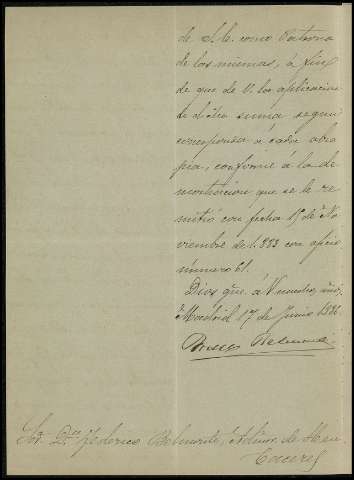 de S. E. como Patrona
de las mismas, á fin
de que de V. las aplicacion
de dicha suma segun
corresponda á cada obra
pia, conforme á la de
mostracion que se le re
mitió con fecha 15 de No
viembre de 1.883 con oficio
número 61.
Dios gue. á V. muchos años.
Madrid 17 de Junio 188
Sor. Dn. Federico Belmonte, Admor. de
Caceres